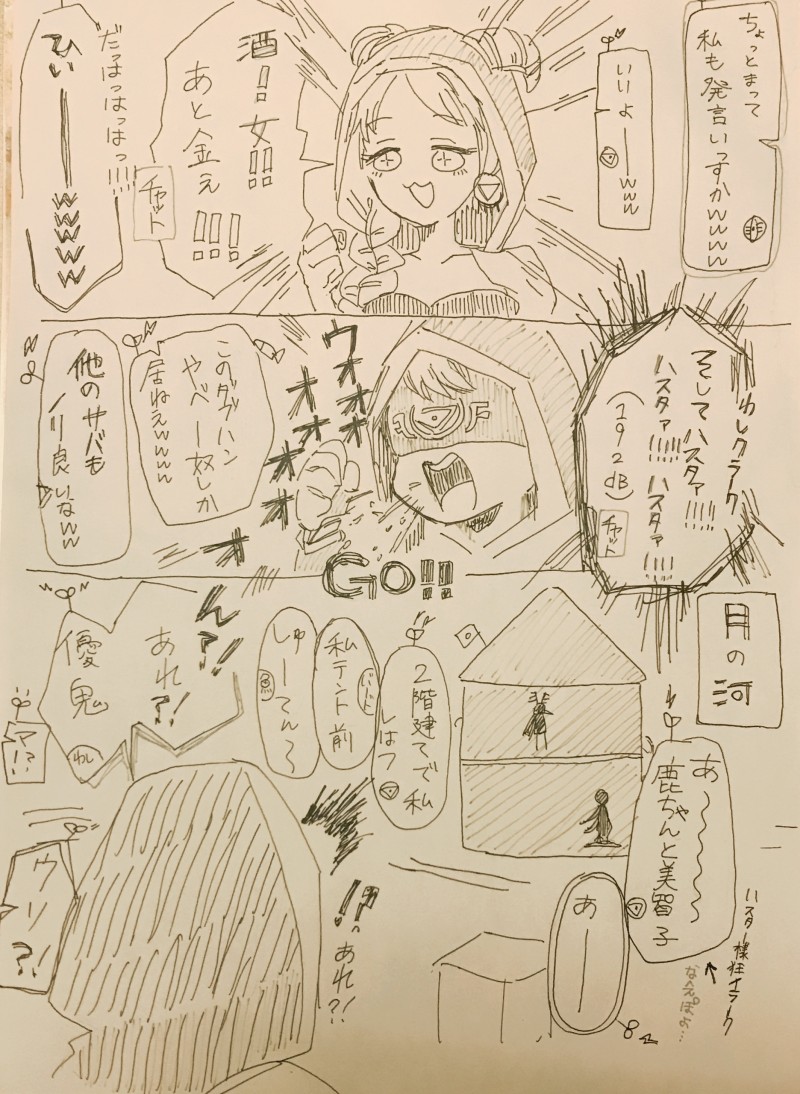 ちょっとまって
私も発言いっすかwwww
いいよーーwww
酒!!女!!
あと金ぇ!!!
チャット
だっはっはっはっ!!!!
ひぃーーwwwww
われクラーク
そしてハスタァ!!!!
ハスタァ!!!!!ハスタァ!!!!
(192dB)
チャット
ウオオオオオオオオ
このダブハン
やべー奴しか
居ねえwwww
他のサバも
ノリ良いなww
GO!!
月の河
あ〜〜〜〜〜
鹿ちゃんと美智子
ハスター様狂イラーク
なえぽよ…
あーー
2階建てで私
しはつ
私テント前
しゅーてん〜
ん?!
あれ?!
優鬼
ファ?!
!?
あれ?!
ウソ?!